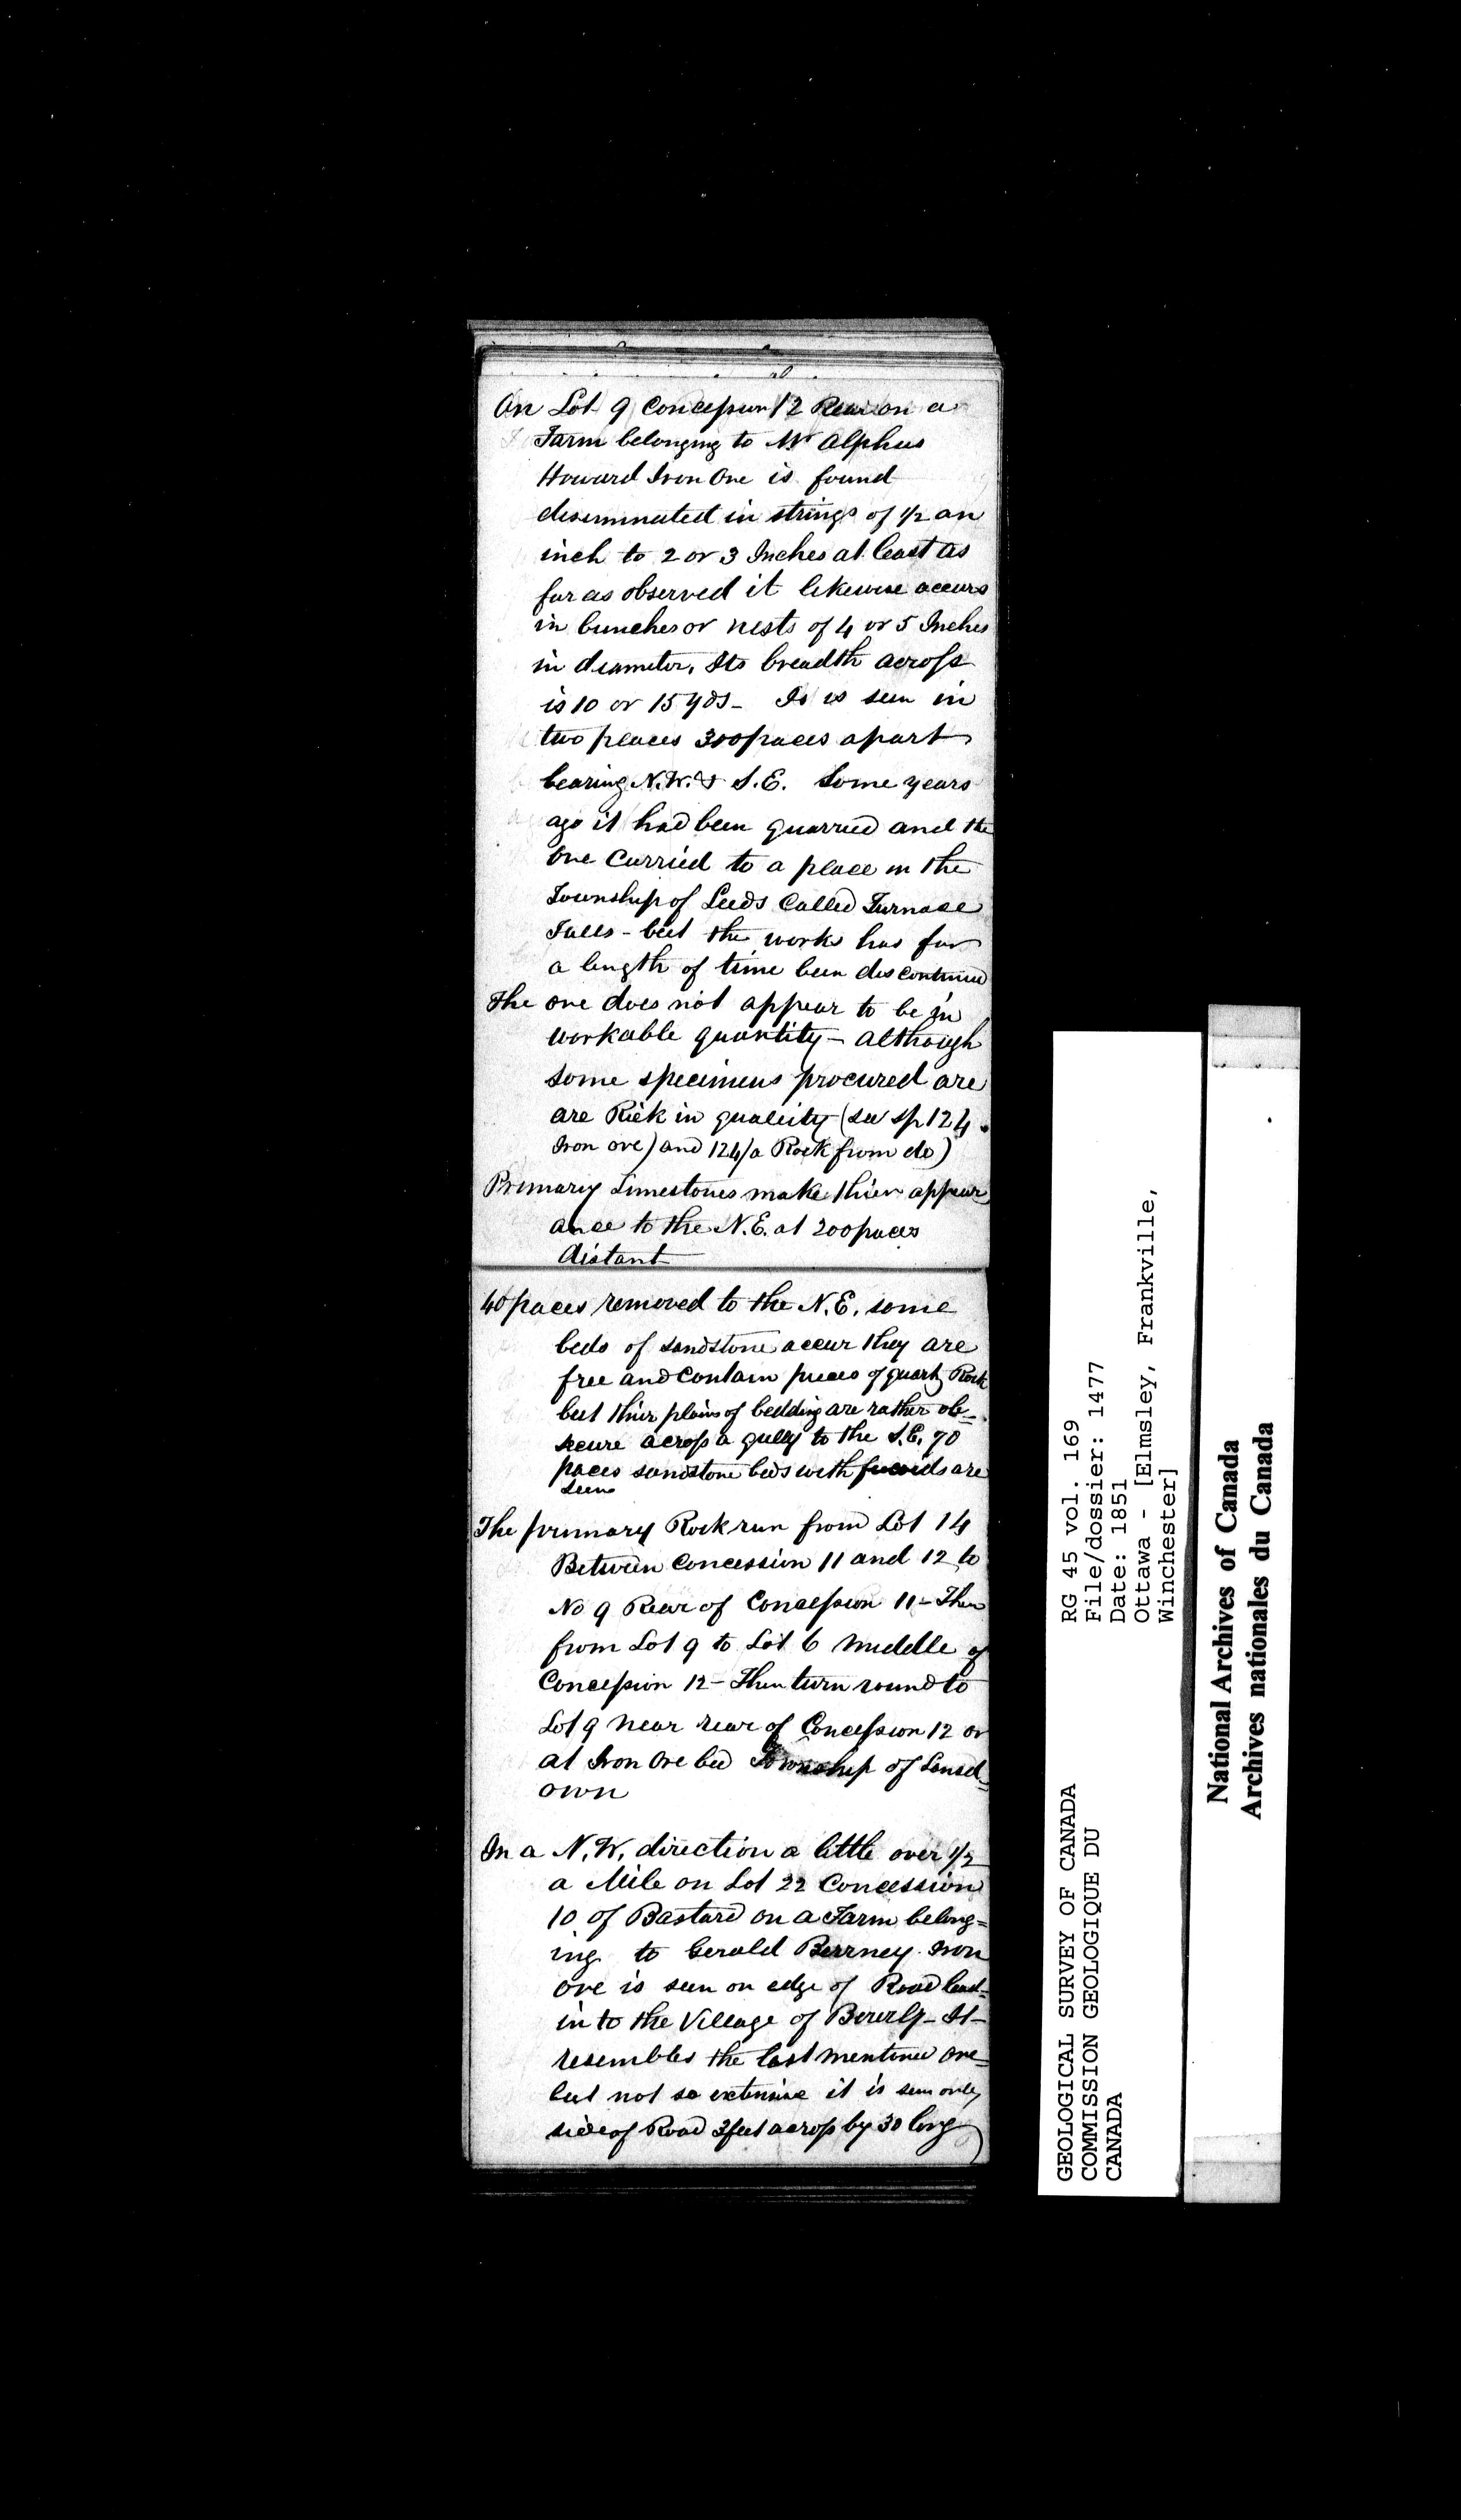 On Lot 9 Concession 12 Rear on a
Farm belonging to Mr Alphus
Howard Iron Ore is found
diseminated in strings of 1/2 an
inch to 2 or 3 Inches at least as
far as observed it likewise occurs
in bunches or nests of 4 or 5 Inches
in diameter. Its breadth across
is 10 or 15 yds_ It is seen in
two places 300 paces apart
bearing N.W. & S.E. Some years
ago it had been quarried and the
Ore Carried to a place in the
Township of Leeds Called Furnace
Falls - but the works has for
a length of time been discontinued
The ore does not appear to be in
workable quantity - although
some specimens procured are
are Rich in quality (see sp 124
Iron ore) and 124/a Rock from do)
Primary Limestones make thier appear
ance to the N.E. at 200 paces
distant
40 paces removed to the N.E. some
beds of sandstone occur they are
free and Contain pieces of quartz Rock
but thier plains of bedding are rather ob=
scure across a gully to the S.E. 70
paces sandstone beds with fucoids are
seen
The primary Rock run from Lot 14
Between Concession 11 and 12 to
No 9 Rear of Concession 11 - Then
from Lot 9 to Lot 6 middle of
Concession 12 - Then turn round to
Lot 9 near rear of Concession 12 or
at Iron Ore bed Township of Lansd=
own
In a N.W. direction a little over 1/2
a Mile on Lot 22 Concession
10 of Bastard on a Farm belong=
ing to Gerald Berrney Iron
ore is seen on edge of Road lead=
in to the Village of Beverly - It
resembles the last mentined one=
but not so extensive it is seen only
side of Road 3 feet across by 30 long
GEOLOGICAL SURVEY OF CANADA
COMMISSION GEOLOGIQUE DU
CANADA
RG 45 vol. 169
File/dossier: 1477
Date: 1851
Ottawa - [Elmsley, Frankville,
Winchester]
National Archives of Canada
Archives nationales du Canada